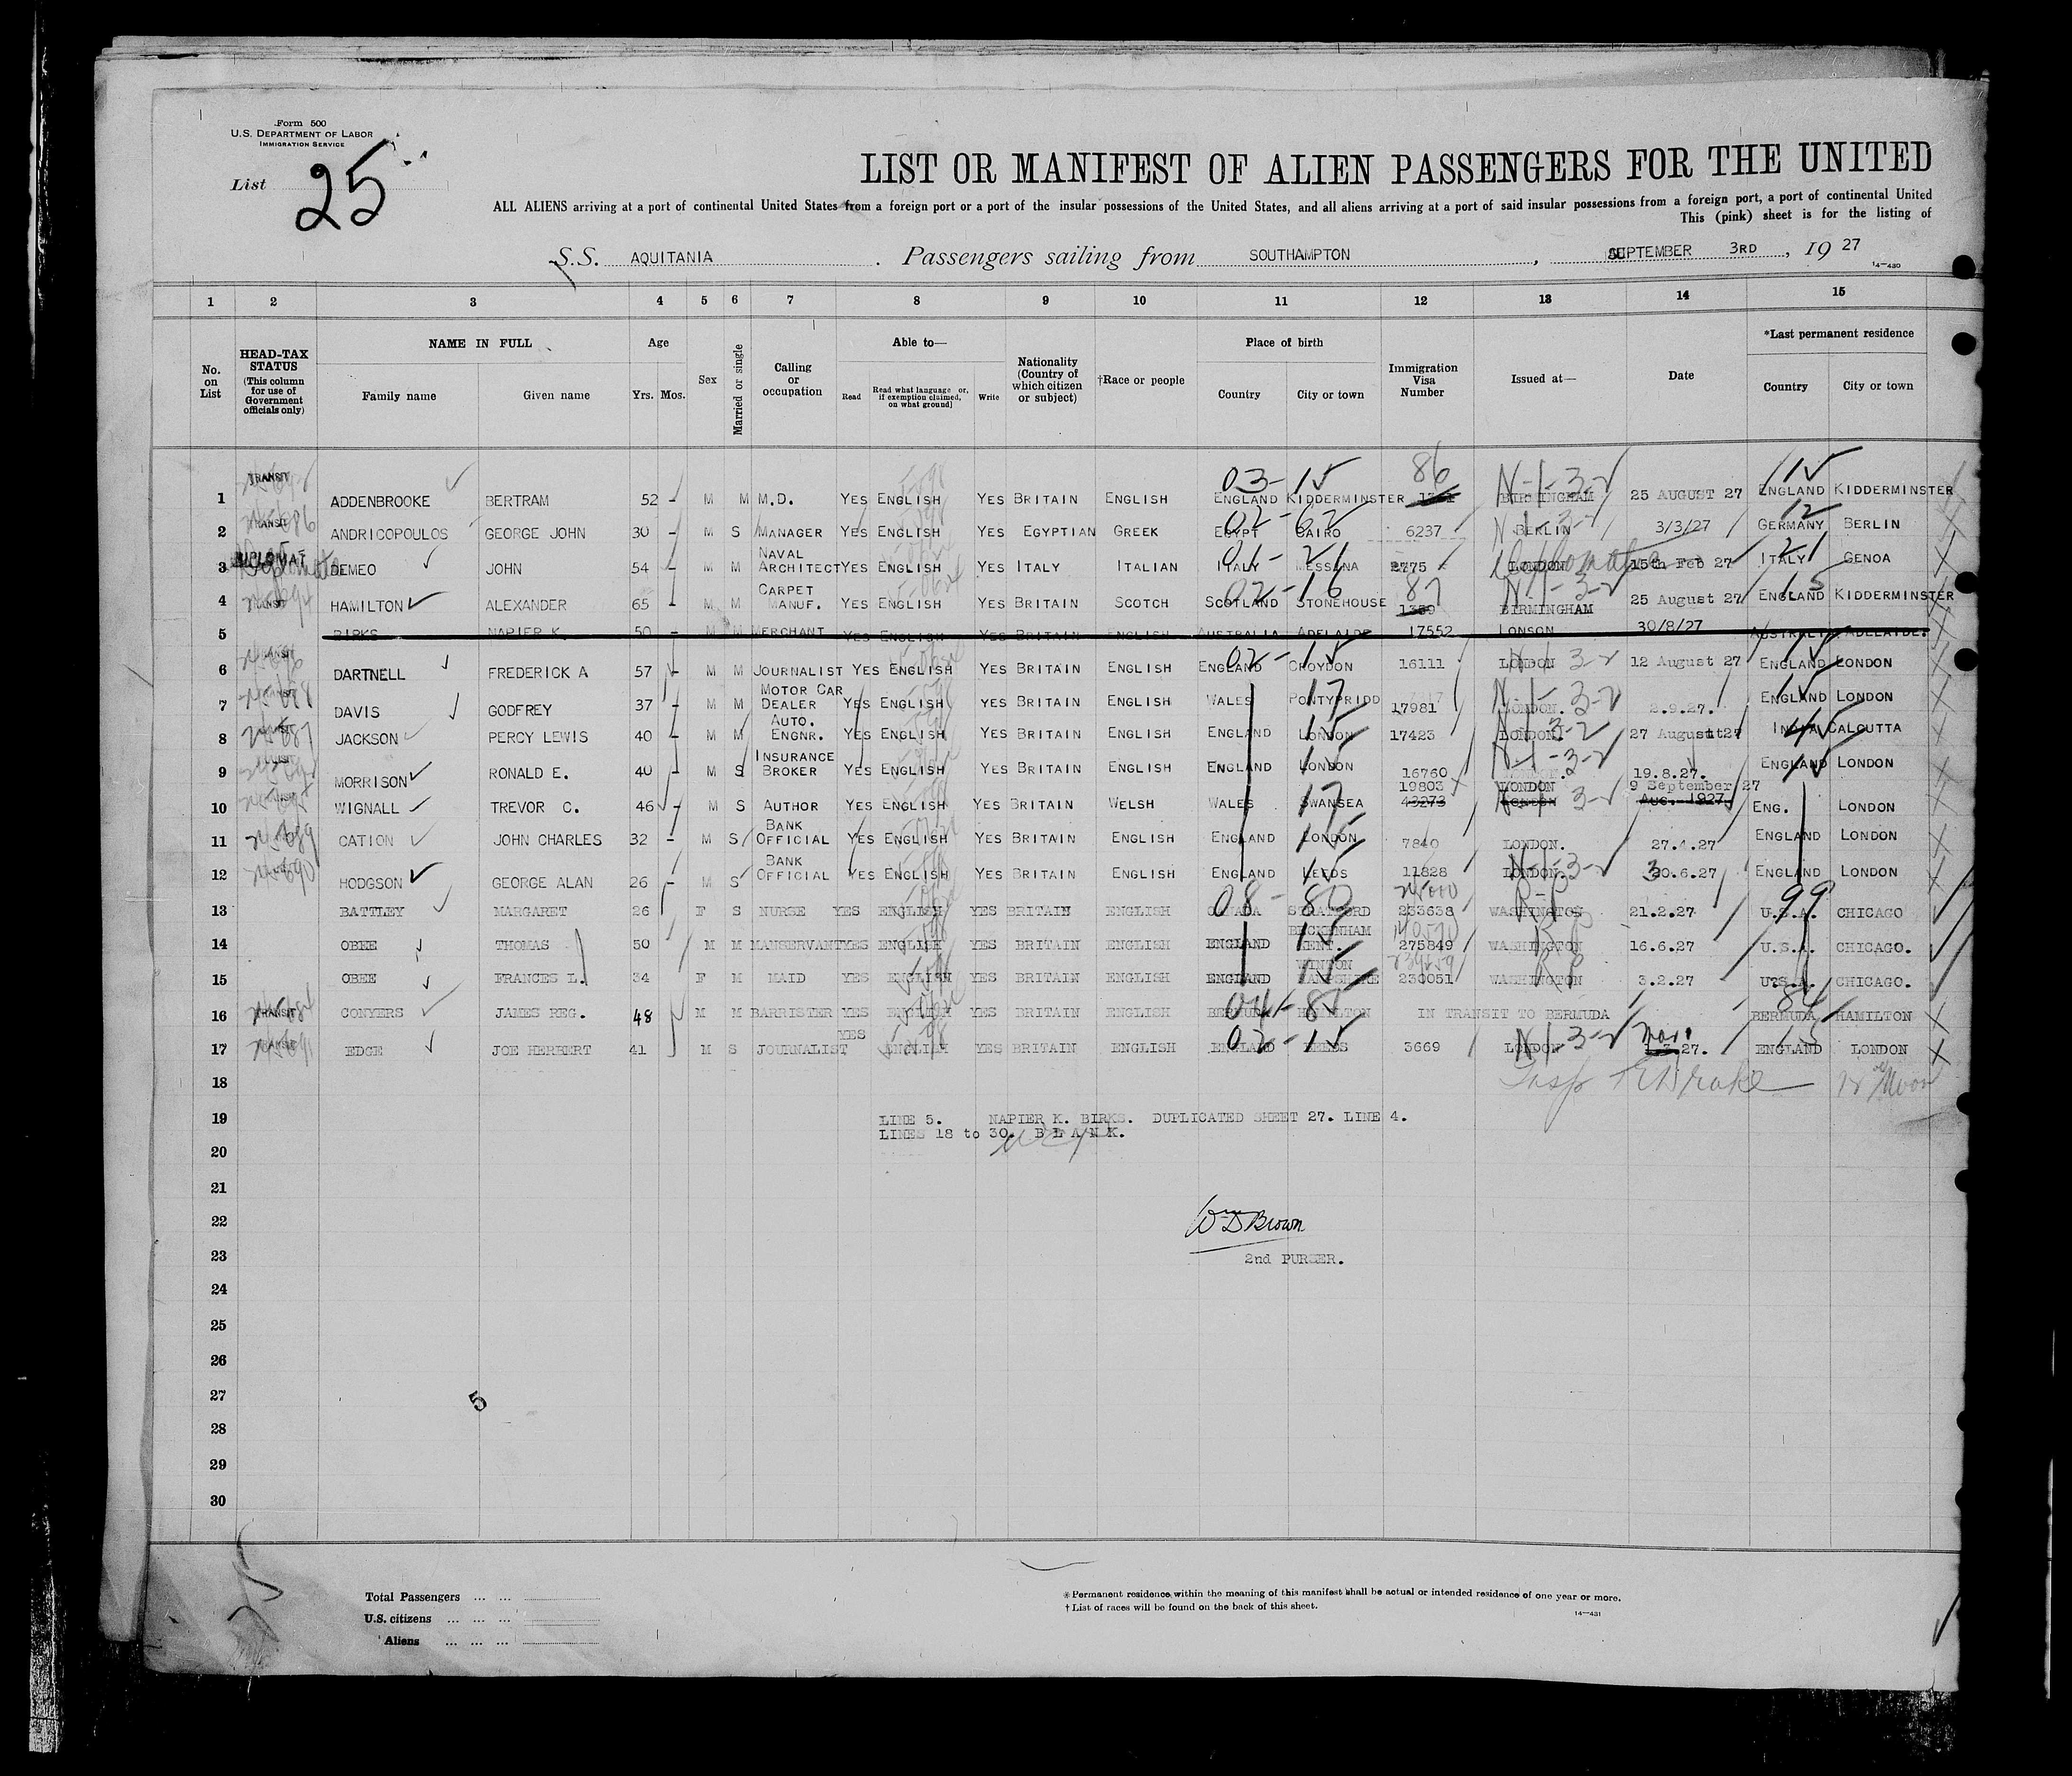 Form 500
U.S. DEPARTMENT OF LABOR
IMMIGRATION SERVICE
List 25
LIST OR MANIFEST OF ALIEN PASSENGERS FOR THE UNITED
ALL ALIENS arriving at a port of continental United States from a foreign port or a port of the insular possessions of the United States, and all aliens arriving at a port of said insular possessions from a foreign port, a port of continental United
This (pink) sheet is for the listing of
S.S. AQUITANIA . Passengers sailing from SOUTHAMPTON , SEPTEMBER 3RD , 19 27
14-430
1 2 3 4 5 6 7 8 9 10 11 12 13 14 15
No. on List
HEAD-TAX STATUS (This column for use of Government officials only)
NAME IN FULL Family name Given name
Age Yrs. Mos.
Sex
Married or single
Calling or occupation
Able to— Read Read what language or, if exemption claimed, on what ground] Write
Nationality (Country of which citizen or subject)
†Race or people
Place of birth Country City or town
Immigration Visa Number
Issued at—
Date
*Last permanent residence Country City or town
1 TRANSIT ADDENBROOKE BERTRAM 52 - M M M.D. YES ENGLISH YES BRITAIN ENGLISH 03-15 ENGLAND KIDDERMINSTER 86 N-1-3-2 BIRMINGHAM 25 AUGUST 27 15 ENGLAND KIDDERMINSTER
2 TRANSIT ANDRICOPOULOS GEORGE JOHN 30 - M S MANAGER YES ENGLISH YES EGYPTIAN GREEK 02-62 EGYPT CAIRO 6237 BERLIN 3/3/27 12 GERMANY BERLIN
3 DIPLOMAT DEMEO JOHN 54 - M M NAVAL ARCHITECT YES ENGLISH YES ITALY ITALIAN 01-21 ITALY MESSINA 2775 Diplomatic LONDON 15th Feb 27 21 ITALY GENOA
4 TRANSIT HAMILTON ALEXANDER 65 - M M CARPET MANUF. YES ENGLISH YES BRITAIN SCOTCH 02-16 SCOTLAND STONEHOUSE 87 N-1-3-2 BIRMINGHAM 25 August 27 15 ENGLAND KIDDERMINSTER
5 BIRKS NAPIER K. 50 - M M MERCHANT YES ENGLISH YES BRITAIN ENGLISH AUSTRALIA ADELAIDE 17552 LONSON 30/8/27 AUSTRALIA ADELAIDE.
6 DARTNELL FREDERICK A 57 - M M JOURNALIST YES ENGLISH YES BRITAIN ENGLISH 02-15 ENGLAND CROYDON 16111 LONDON 3-2 12 August 27 15 ENGLAND LONDON
7 DAVIS GODFREY 37 - M M MOTOR CAR DEALER YES ENGLISH YES BRITAIN ENGLISH WALES 17 PONTYPRIDD 17981 N-1-3-2 LONDON. 2.9.27. 15 ENGLAND LONDON
8 JACKSON PERCY LEWIS 40 - M M AUTO. ENGNR. YES ENGLISH YES BRITAIN ENGLISH ENGLAND 15 LONDON 17423 N-1-3-2 LONDON. 27 August 27 45 INDIA CALCUTTA
9 MORRISON RONALD E. 40 - M S INSURANCE BROKER YES ENGLISH YES BRITAIN ENGLISH ENGLAND 15 LONDON 16760 N-1-3-2 19.8.27. ENGLAND 15 LONDON
10 WIGNALL TREVOR C. 46 - M S AUTHOR YES ENGLISH YES BRITAIN WELSH WALES 17 SWANSEA 19803 43273 LONDON LONDON 3-2 9 September 27 AUG. 1927 ENG. LONDON
11 CATION JOHN CHARLES 32 - M S BANK OFFICIAL YES ENGLISH YES BRITAIN ENGLISH ENGLAND 15 LONDON 7840 LONDON. 27.4.27 ENGLAND LONDON
12 HODGSON GEORGE ALAN 26 - M S BANK OFFICIAL YES ENGLISH YES BRITAIN ENGLISH ENGLAND 15 LEEDS 11828 N-1-3-2 LONDON. 30.6.27 ENGLAND LONDON
13 BATTLEY MARGARET 26 F S NURSE YES ENGLISH YES BRITAIN ENGLISH 08-80 CANADA STRATFORD 233638 WASHINGTON 21.2.27 99 U.S.A. CHICAGO
14 OBEE THOMAS 50 M M MANSERVANT YES ENGLISH YES BRITAIN ENGLISH ENGLAND 15 BECKENHAM KENT. 275849 WASHINGTON 16.6.27 U.S.A. CHICAGO.
15 OBEE FRANCES L. 34 F M MAID YES ENGLISH YES BRITAIN ENGLISH ENGLAND 15 WINTON HAMPSHIRE 230051 WASHINGTON 3.2.27 U.S.A. CHICAGO.
16 TRANSIT CONYERS JAMES REG. 48 M M BARRISTER YES ENGLISH YES BRITAIN ENGLISH 04-85 BERMUDA HAMILTON IN TRANSIT TO BERMUDA BERMUDA HAMILTON
17 EDGE JOE HERBERT 41 M S JOURNALIST YES ENGLISH YES BRITAIN ENGLISH 02-15 ENGLAND LEEDS 3669 N-1-3-2 LONDON Mar. 27. 15 ENGLAND LONDON
18
19 LINE 5. NAPIER K. BIRKS. DUPLICATED SHEET 27. LINE 4.
LINES 18 to 30. B L A N K.
20
21
22 W D Brown
23 2nd PURSER.
24
25
26
27 5
28
29
30
Total Passengers
U.S. citizens
Aliens
* Permanent residence within the meaning of this manifest shall be actual or intended residence of one year or more.
† List of races will be found on the back of this sheet.
14-431